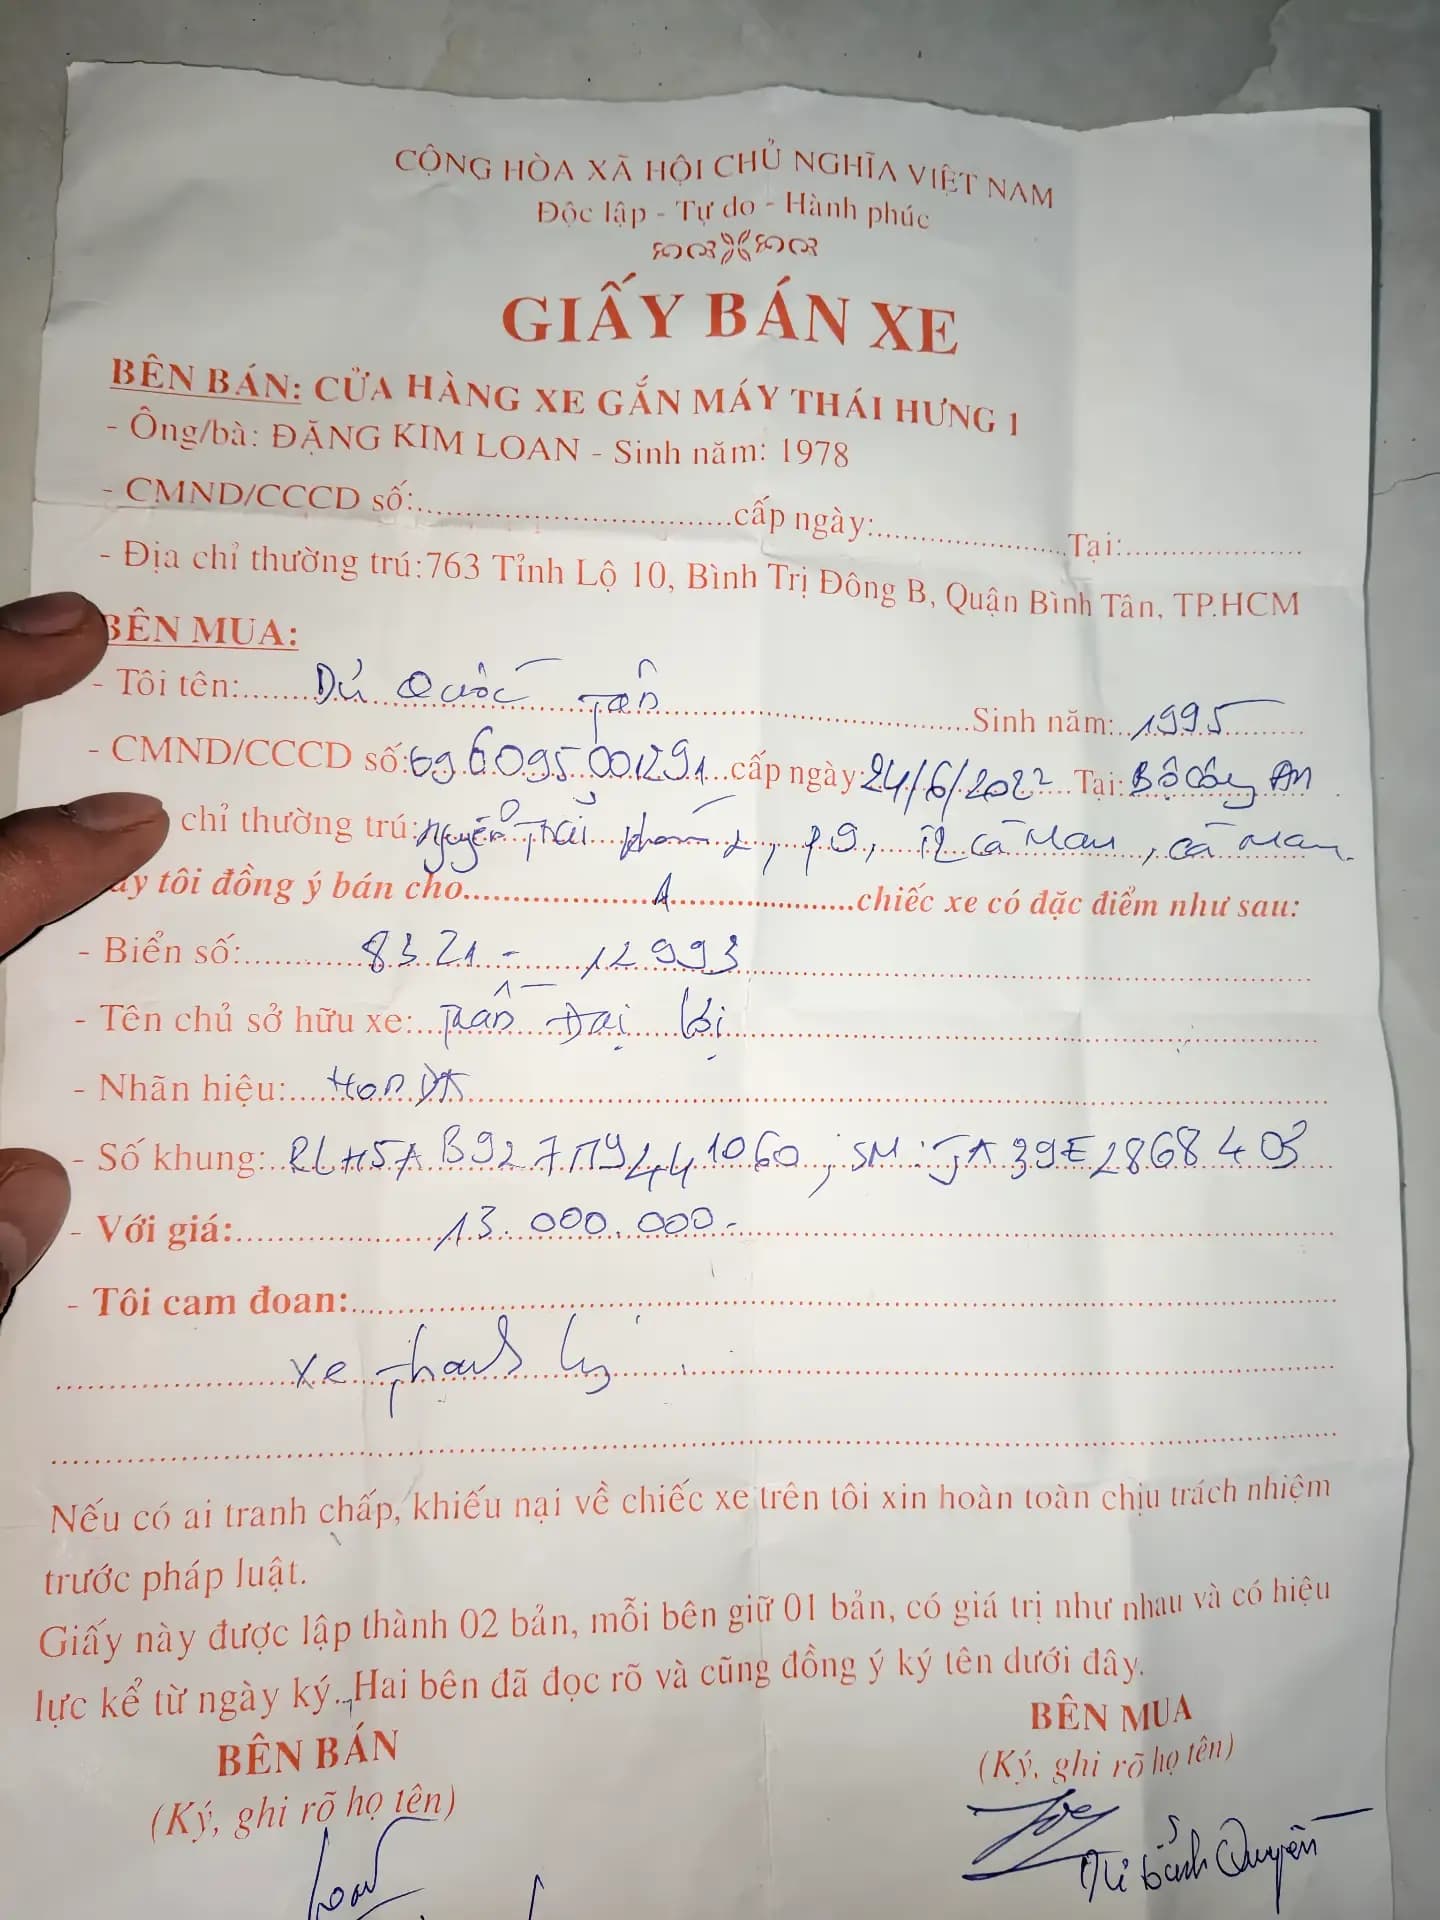 CỘNG HÒA XÃ HỘI CHỦ NGHĨA VIỆT NAM
Độc lập - Tự do - Hành phúc
GIẤY BÁN XE
BÊN BÁN: CỬA HÀNG XE GẮN MÁY THÁI HƯNG 1
- Ông/bà: ĐẶNG KIM LOAN - Sinh năm: 1978
- CMND/CCCD số:..........cấp ngày:..........Tại:..........
- Địa chỉ thường trú:763 Tỉnh Lộ 10, Bình Trị Đông B, Quận Bình Tân, TP.HCM
BÊN MUA:
- Tôi tên: Dư Quốc Tân Sinh năm: 1995
- CMND/CCCD số: 096095001291 cấp ngày: 24/6/2022 Tại: Bộ Công An
chỉ thường trú: Nguyễn Trãi khóm 2, P9, TP Cà Mau, Cà Mau.
ay tôi đồng ý bán cho 1 chiếc xe có đặc điểm như sau:
- Biển số: 83Z1 - 12993
- Tên chủ sở hữu xe: Trần Đại
- Nhãn hiệu: HONDA
- Số khung: ; SM: JA39E2868403
- Với giá: 13.000.000.-
- Tôi cam đoan:
xe thanh lý
Nếu có ai tranh chấp, khiếu nại về chiếc xe trên tôi xin hoàn toàn chịu trách nhiệm
trước pháp luật.
Giấy này được lập thành 02 bản, mỗi bên giữ 01 bản, có giá trị như nhau và có hiệu
lực kể từ ngày ký. Hai bên đã đọc rõ và cũng đồng ý ký tên dưới đây.
BÊN BÁN BÊN MUA
(Ký, ghi rõ họ tên) (Ký, ghi rõ họ tên)
Loan Quyền